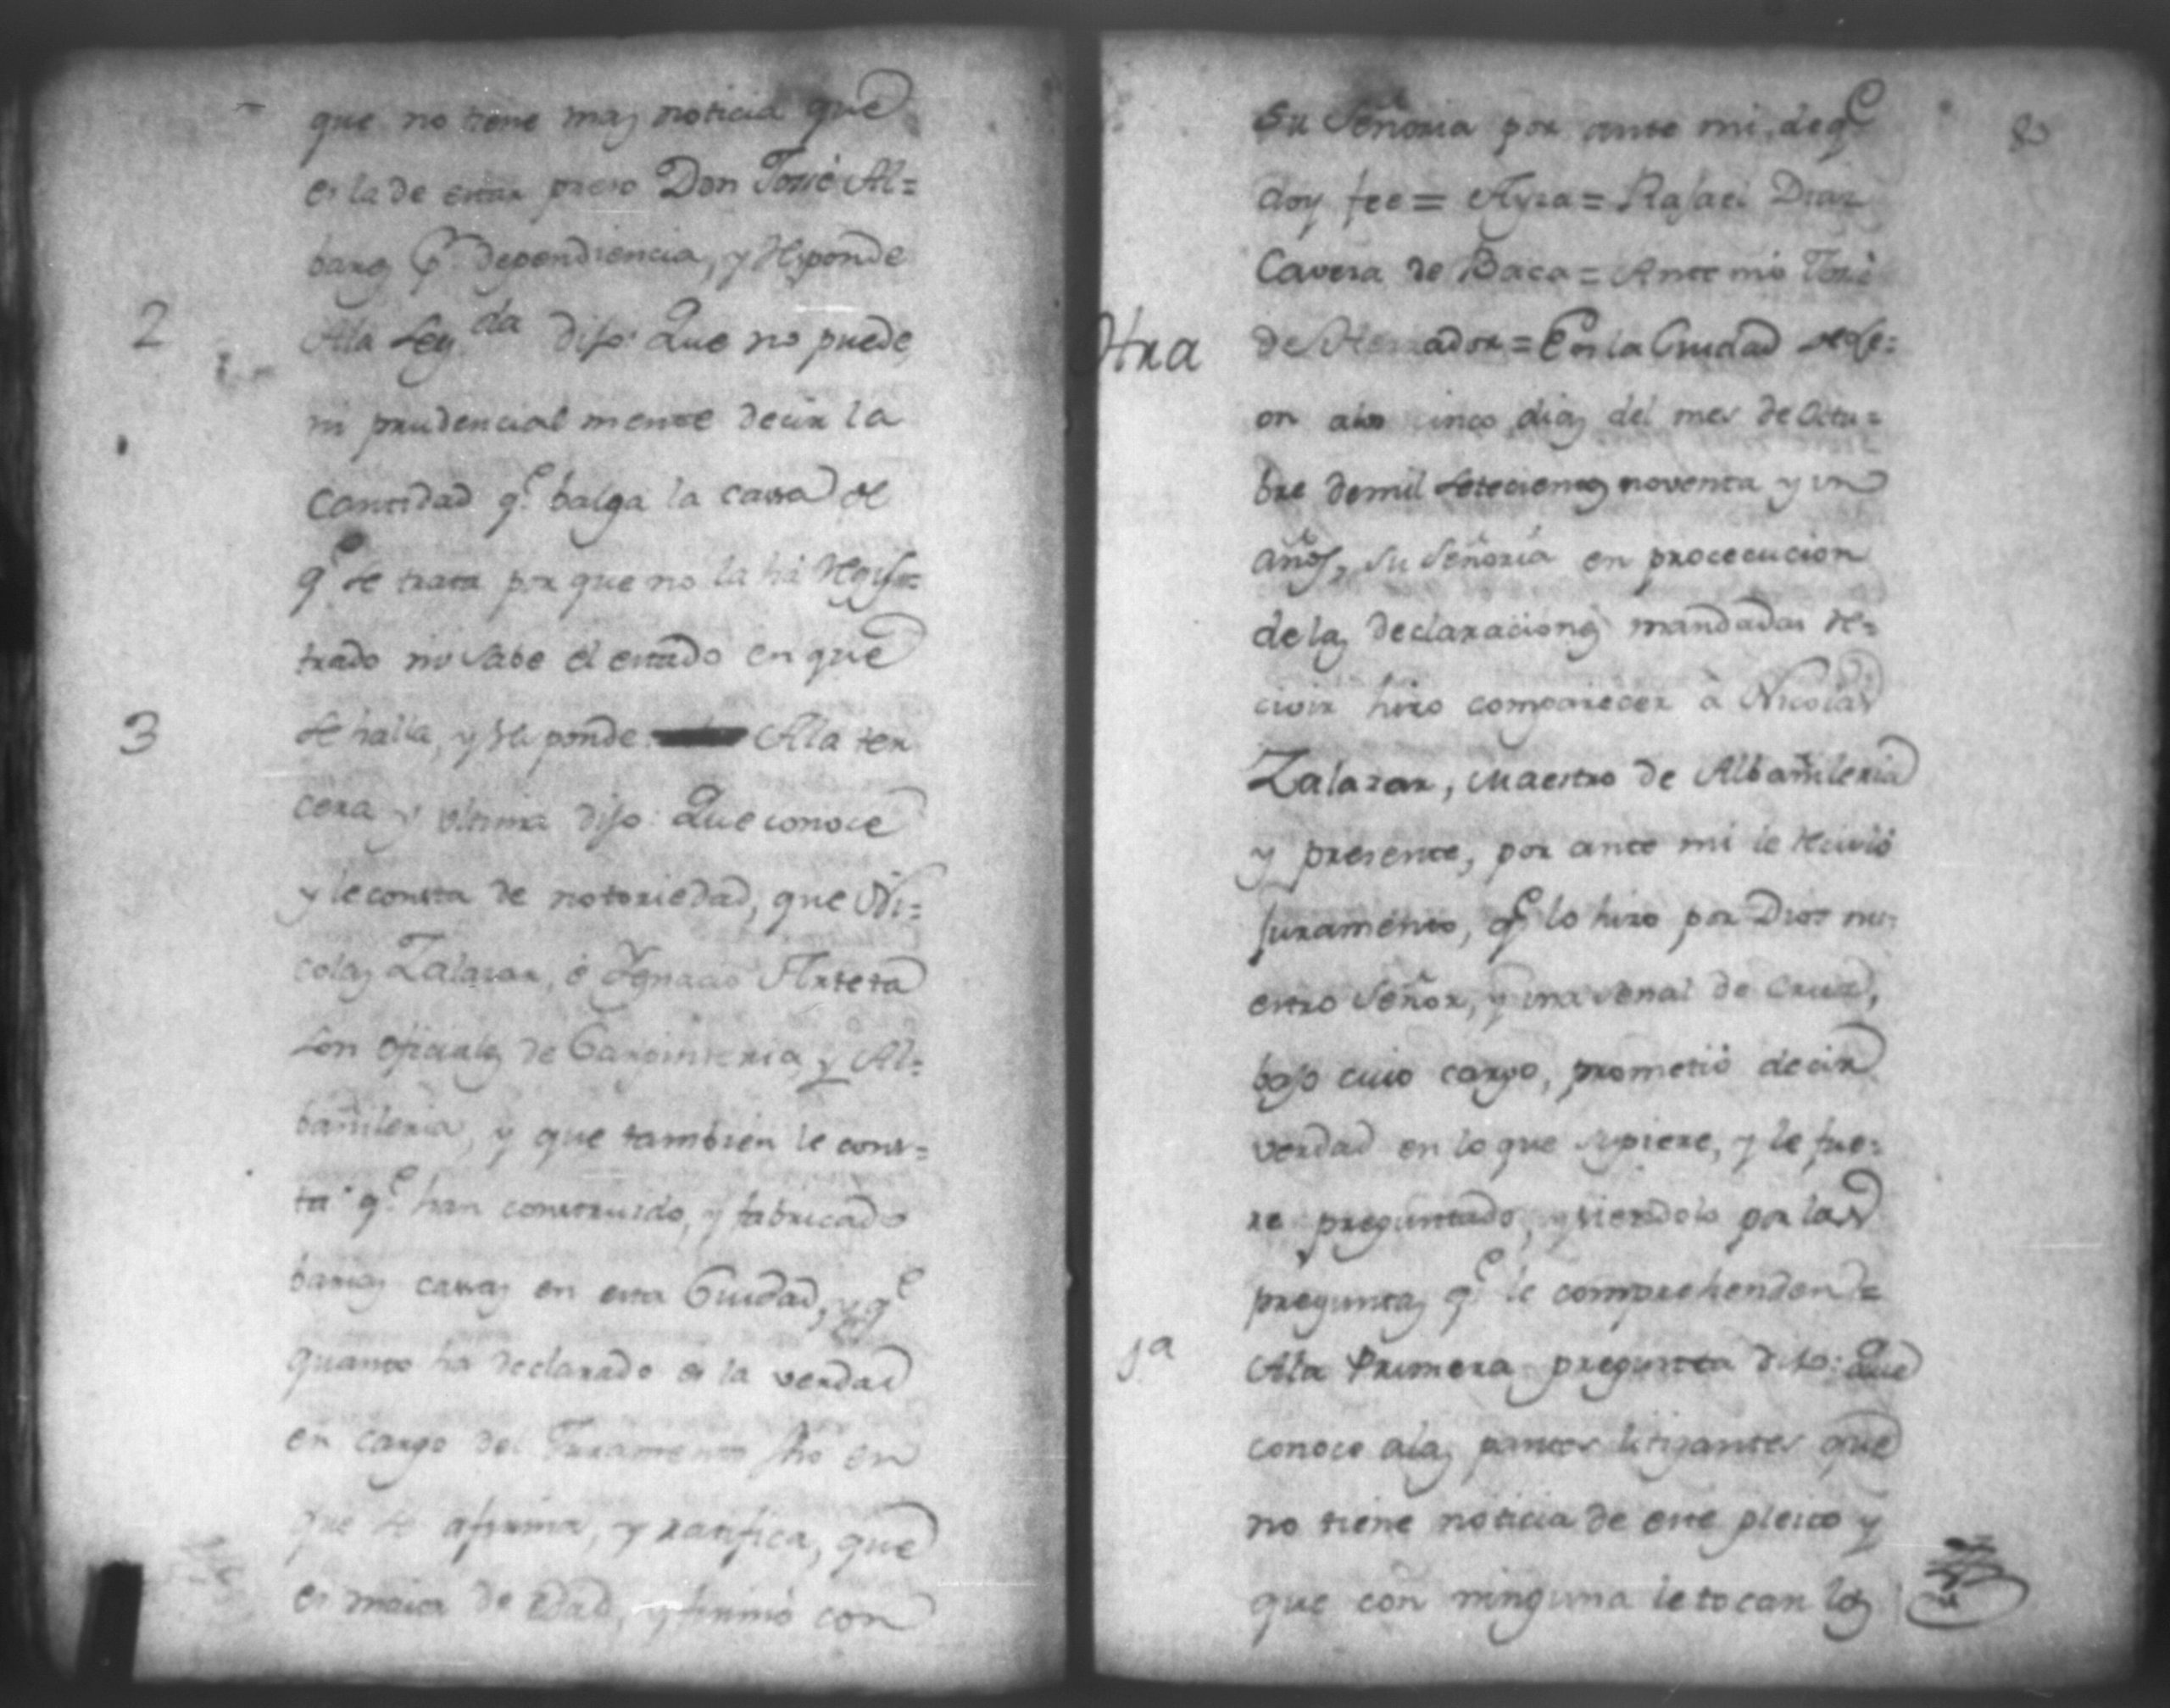 que no tiene mas noticia que
es la de estar preso Don Josè Al=
bares pr. dependiencia, y responde
2
Ala seg.da dijo: Que no puede
ni prudencial mente decir la
Cantidad q.e balga la cassa de
q.e se trata por que no la hà regis=
trado ni sabe el estado en que
3
se halla, y responde Ala ter
cera y ultima dijo: Que conoce
y le consta de notoriedad, que Ni=
colas Zalazar, è Ygnacio Arteta
son oficiales de Carpinteria y Al=
bañileria, y que tambien le cons=
ta q.e han construido, y fabricado
barias cassas en esta Ciudad, y q.e
quanto ha declarado es la verdad
en cargo del Juramento fho en
que se afirma, y ratifica, que
es maior de edad, y firmò con
Su Señoria por ante mi, de q.e
doy fee = Ayza = Rafael Diaz
Cavesa de Baca = Ante mi Josè
de
Otra
= En la Ciudad de Le=
on a los cinco dias del mes de Octu=
bre de mil setecientos noventa y un
años, Su Señoria en procecucion
de las declaraciones mandadas re=
civir hizo comparecer à Nicolas
Zalazar, Maestro de Albañileria
y presente, por ante mi le recivio
juramento, q.e lo hizo por Dios nu=
estro Señor, y una senal de Cruz,
bajo cuio cargo, prometiò decir
verdad en lo que supiere, y le fue=
re preguntado, y siendolo por las
preguntas q.e le comprehenden =
1.a
Ala Primera pregunta dijo: Que
conoce alas partes litigantes que
no tiene noticia de este pleito y
que con ninguna le tocan los